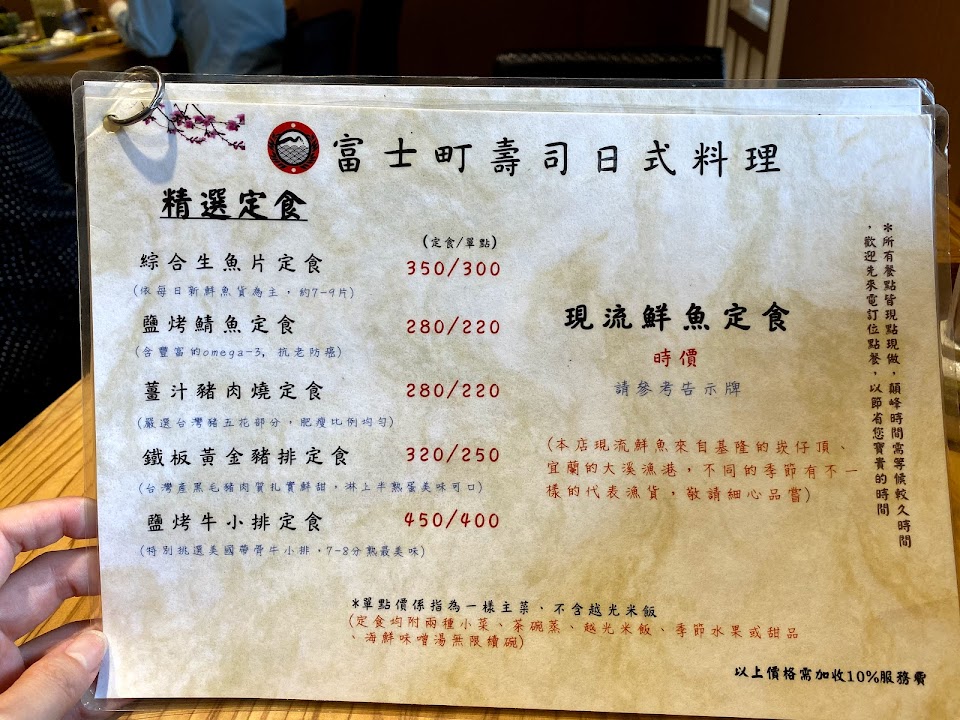 富士町壽司日式料理
精選定食
(定食/單點)
綜合生魚片定食 350/300
(依每日新鮮魚貨為主，約7-9片)
鹽烤鯖魚定食 280/220
(含豐富的omega-3, 抗老防癌)
薑汁豬肉燒定食 280/220
(嚴選台灣豬五花部分，肥瘦比例均勻)
鐵板黃金豬排定食 320/250
(台灣產黑毛豬肉質扎實鮮甜，淋上半熟蛋美味可口)
鹽烤牛小排定食 450/400
(特別挑選美國帶骨牛小排，7-8分熟最美味)
現流鮮魚定食
時價
請參考告示牌
(本店現流鮮魚來自基隆的崁仔頂、
宜蘭的大溪漁港，不同的季節有不一
樣的代表漁貨，敬請細心品嘗)
*所有餐點皆現點現做，顛峰時間需等候較久時間
，歡迎先來電訂位點餐，以節省您寶貴的時間
*單點價係指為一樣主菜、不含越光米飯
(定食均附兩種小菜、茶碗蒸、越光米飯、季節水果或甜品
、海鮮味噌湯無限續碗)
以上價格需加收10%服務費